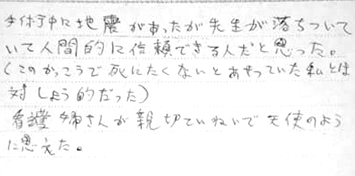 手術中に地震があったが先生が落ちついて
いて人間的に信頼できる人だと思った。
(このかっこうで死にたくないとあせっていた私とは
対しょう的だった)
看護婦さんが親切ていねいで天使のよう
に思えた。